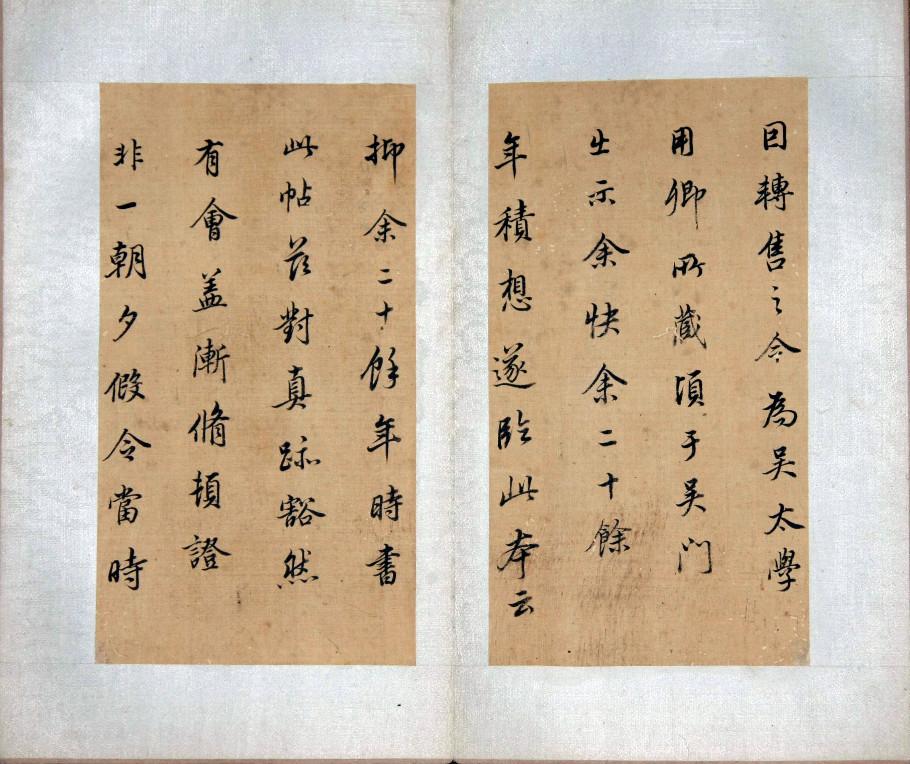 因轉售之今為吴太學
用卿所藏頃于吴門
出示余快余二十餘
年積想遂臨此本云
抑余二十餘年時書
此帖茲對真跡豁然
有會蓋漸脩頓證
非一朝夕假令當時